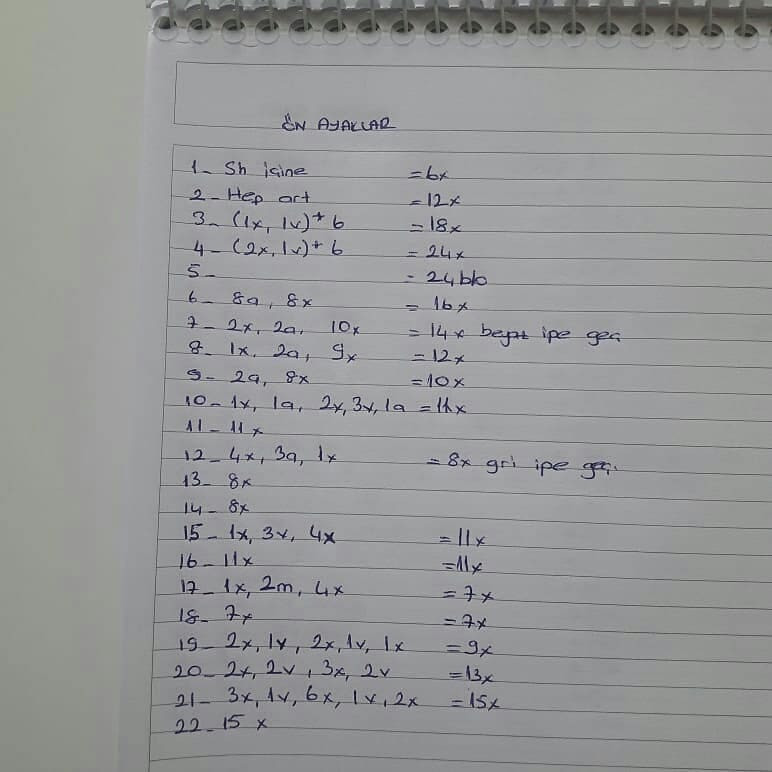 ÖN AYAKLAR
1- Sh içine =6x
2- Hep art =12x
3- (1x, 1v)* 6 =18x
4- (2x, 1v)* 6 =24x
5- =24blo
6- 8a, 8x =16x
7- 2x, 2a, 10x =14x ipe geç
8- 1x, 2a, 9x =12x
9- 2a, 8x =10x
10- 1x, 1a, 2x, 3v, 1a =11x
11- 11x
12- 4x, 3a, 1x =8x gri ipe geç.
13- 8x
14- 8x
15- 1x, 3v, 4x =11x
16- 11x =11x
17- 1x, 2m, 4x =7x
18- 7x =7x
19- 2x, 1v, 2x, 1v, 1x =9x
20- 2x, 2v, 3x, 2v =13x
21- 3x, 1v, 6x, 1v, 2x =15x
22- 15 x